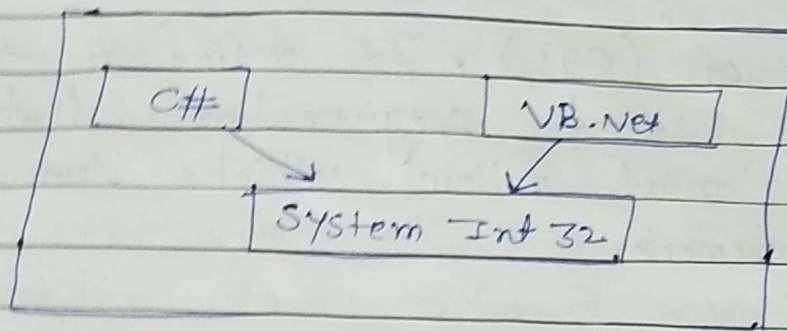 C#
VB.Net
System Int 32